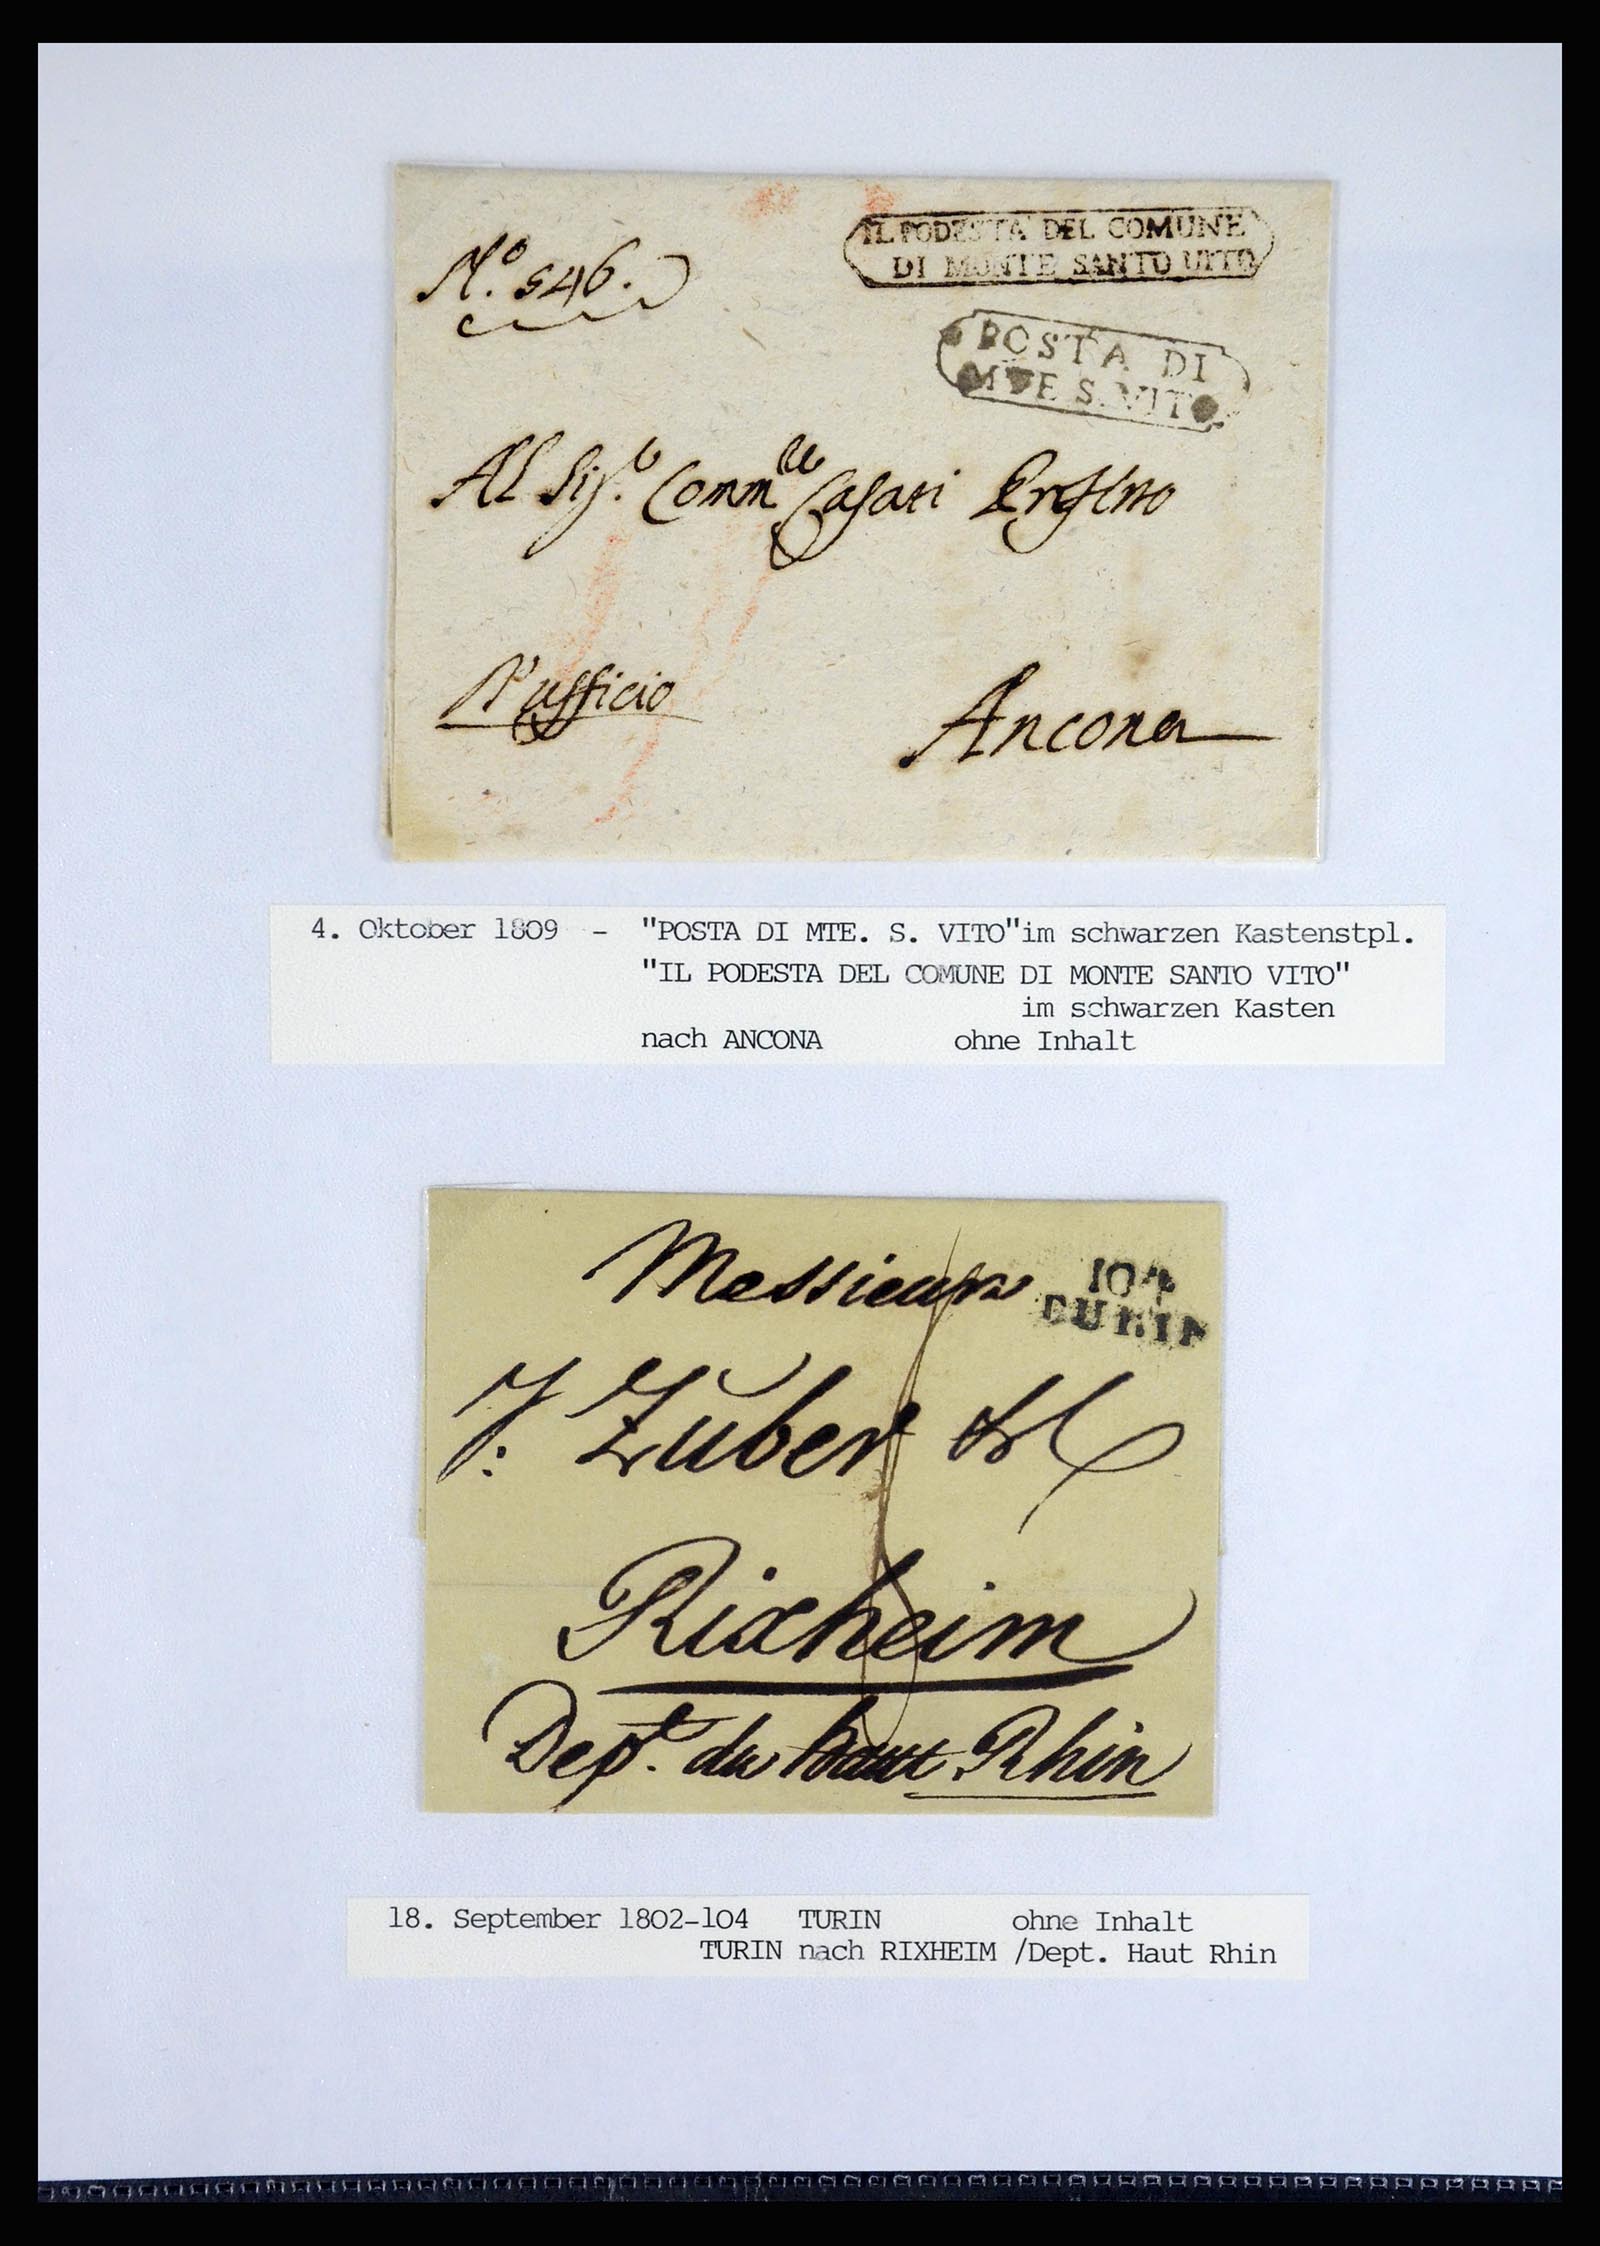 IL PODESTA DEL COMUNE
DI MONTE SANTO UITO
Nº. 546.
POSTA DI
MTE S. VITO
Al Sigr. Casati
D'ufficio
Ancona
4. Oktober 1809 - "POSTA DI MTE. S. VITO"im schwarzen Kastenstpl.
"IL PODESTA DEL COMUNE DI MONTE SANTO VITO"
im schwarzen Kasten
nach ANCONA ohne Inhalt
Messieurs
104
TURIN
J: Zuber & C
Rixheim
Dept. du haut Rhin
18. September 1802-104 TURIN ohne Inhalt
TURIN nach RIXHEIM /Dept. Haut Rhin